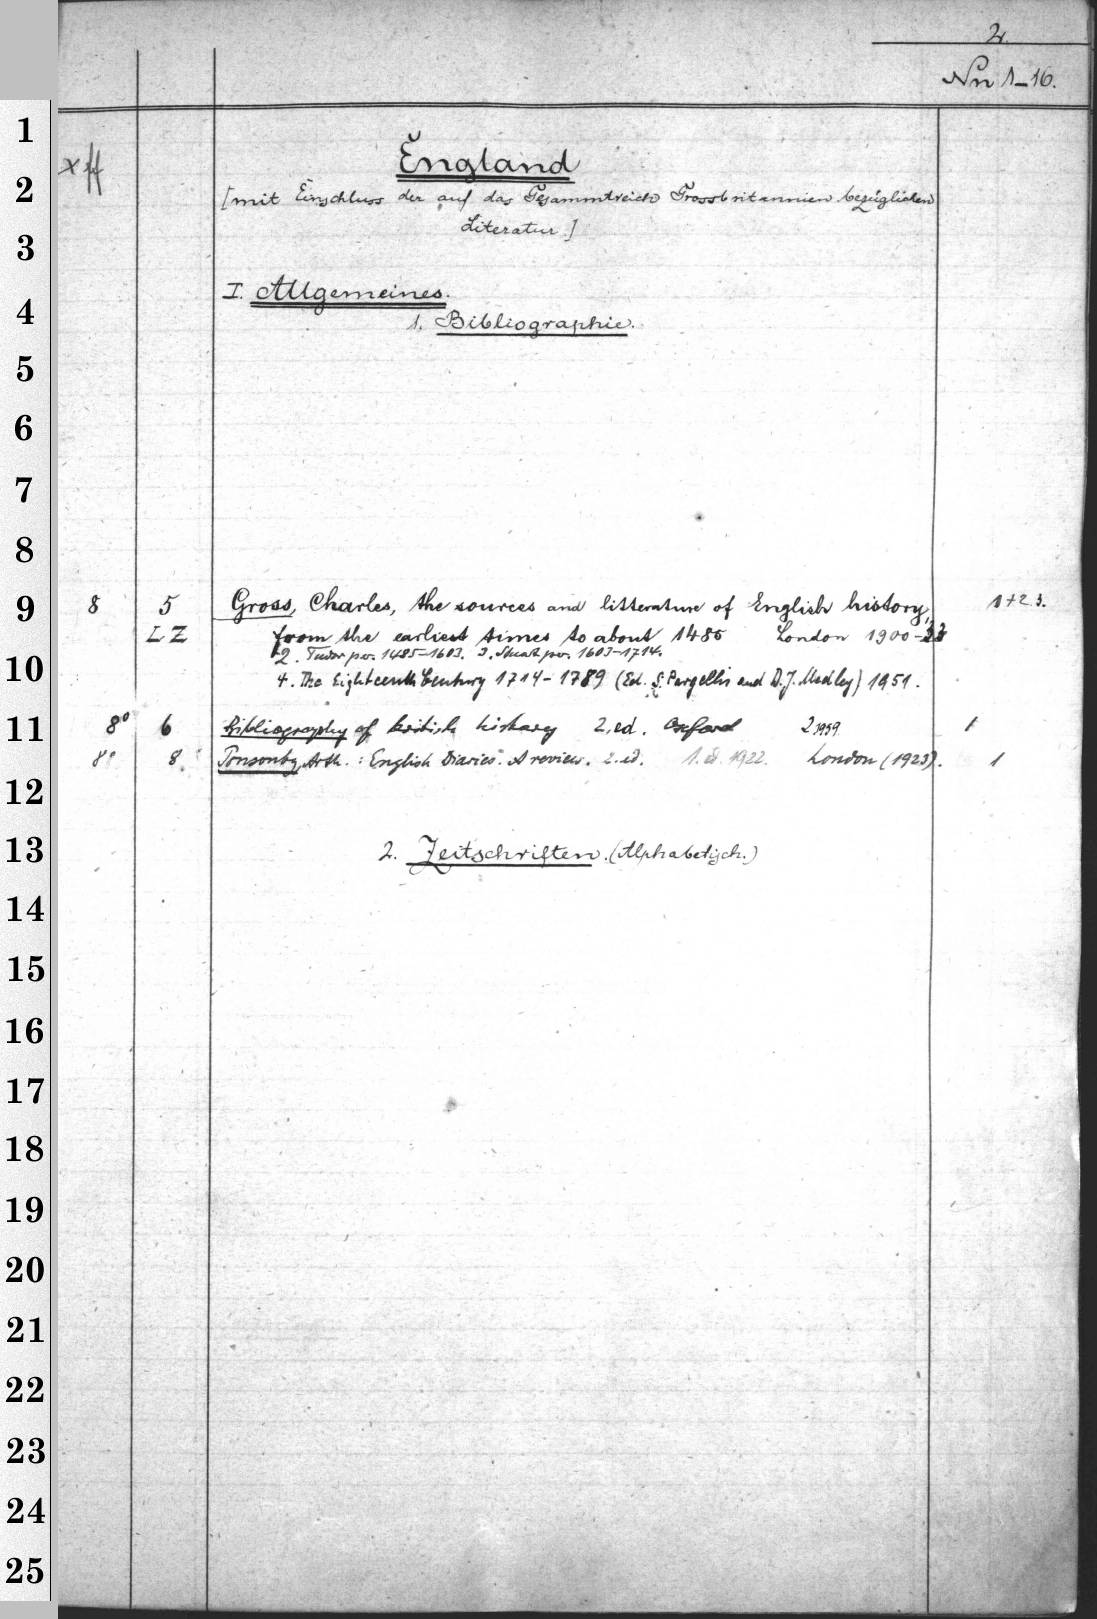 2.
Nn 1-16.
1
2
3
4
5
6
7
8
9
10
11
12
13
14
15
16
17
18
19
20
21
22
23
24
25
England
[mit Einschluss der auf das Gesammtreich Grossbritannien bezüglichen
Literatur.]
I. Allgemeines.
1. Bibliographie.
8 5 Gross, Charles, the sources and litterature of English history, 1+2 3.
LZ from the earliest times to about 1485 London 1900-
2. Tudor per. 1485-1603. 3. Stuart per. 1603-1714.
4. The Eighteenth Century 1714-1789 (Ed. S. Pargellis and D.J. Medley) 1951.
8° 6 Bibliography of british history 2. ed. Oxford 2 1959 1
8° 8. Ponsonby, Arth.: English Diaries. A review. 2. ed. 1. ed. 1922. London (1923). 1
2. Zeitschriften. (Alphabetisch.)